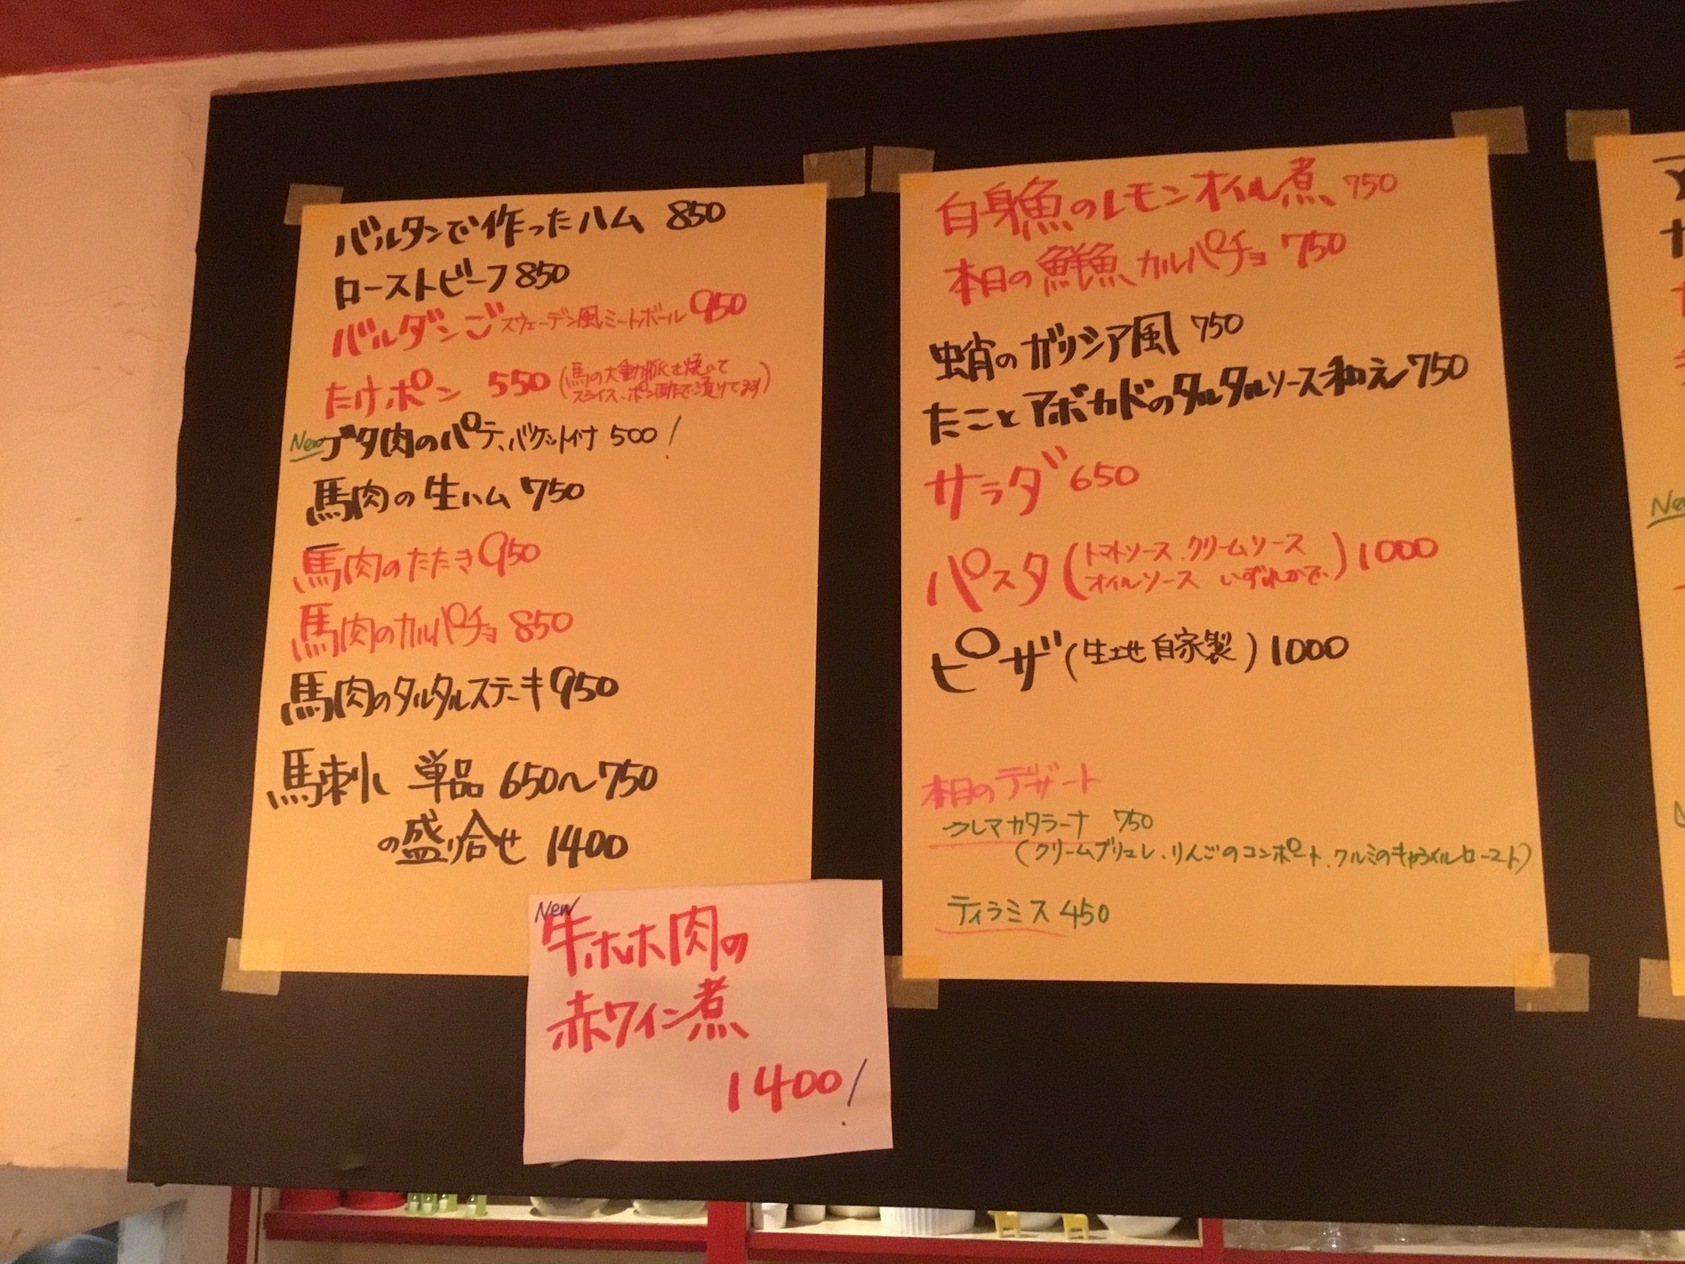 バルタンで作ったハム 850
ローストビーフ 850
バルダンご スウェーデン風ミートボール 950
たけポン 550 (馬の大動脈を焼いて
スライス、ポン酢で漬けてます)
New ブタ肉のパテ、バケット付 500!
馬肉の生ハム 750
馬肉のたたき 950
馬肉のカルパチョ 850
馬肉のタルタルステーキ 950
馬刺し 単品 650〜750
の盛り合せ 1400
New
牛ホホ肉の
赤ワイン煮
1400!
白身魚のレモンオイル煮 750
本日の鮮魚カルパチョ 750
蛸のガリシア風 750
たことアボカドのタルタルソース和え 750
サラダ 650
パスタ (トマトソース、クリームソース
オイルソース いずれかで) 1000
ピザ (生地自家製) 1000
本日のデザート
クレマカタラーナ 750
(クリームブリュレ、りんごのコンポート、クルミのキャラメルロースト)
ティラミス 450